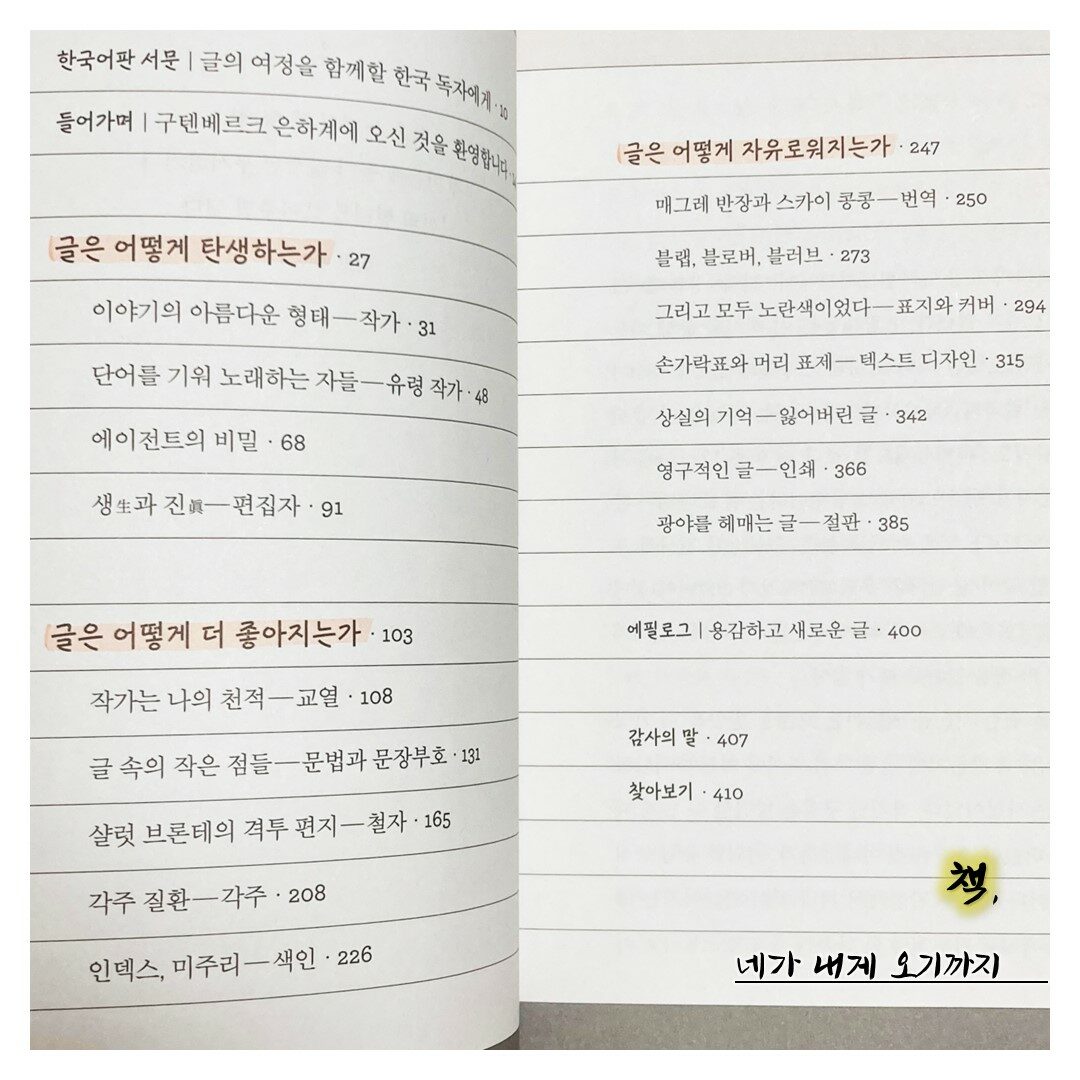 한국어판 서문 | 글의 여정을 함께할 한국 독자에게 · 10
들어가며 | 구텐베르크 은하계에 오신 것을 환영합니다 ·
글은 어떻게 탄생하는가 · 27
이야기의 아름다운 형태—작가 · 31
단어를 기워 노래하는 자들—유령 작가 · 48
에이전트의 비밀 · 68
생生과 진眞—편집자 · 91
글은 어떻게 더 좋아지는가 · 103
작가는 나의 천적—교열 · 108
글 속의 작은 점들—문법과 문장부호 · 131
샬럿 브론테의 격투 편지—철자 · 165
각주 질환—각주 · 208
인덱스, 미주리—색인 · 226
글은 어떻게 자유로워지는가 · 247
매그레 반장과 스카이 콩콩—번역 · 250
블랩, 블로버, 블러브 · 273
그리고 모두 노란색이었다—표지와 커버 · 294
손가락표와 머리 표제—텍스트 디자인 · 315
상실의 기억—잃어버린 글 · 342
영구적인 글—인쇄 · 366
광야를 헤매는 글—절판 · 385
에필로그 | 용감하고 새로운 글 · 400
감사의 말 · 407
찾아보기 · 410
책,
네가 내게 오기까지